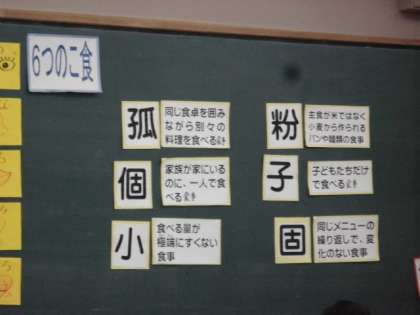 6つのこ食
孤
同じ食卓を囲み
ながら別々の
料理を食べる食事
粉
主食が米ではなく
小麦から作られる
パンや麺類の食事
個
家族が家にいる
のに、一人で食
べる食事
子
子どもたちだけ
で食べる食事
小
食べる量が
極端にすくない
食事
固
同じメニューの
繰り返しで、変
化のない食事